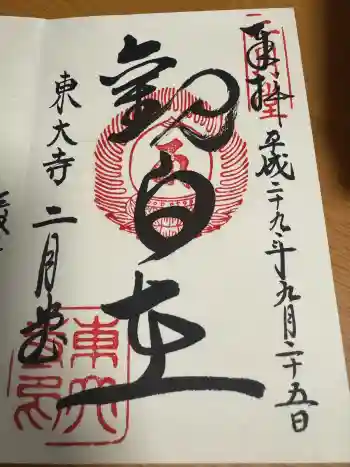 奉拝
平成二十九年九月二十五日
観自在
東大寺
二月堂